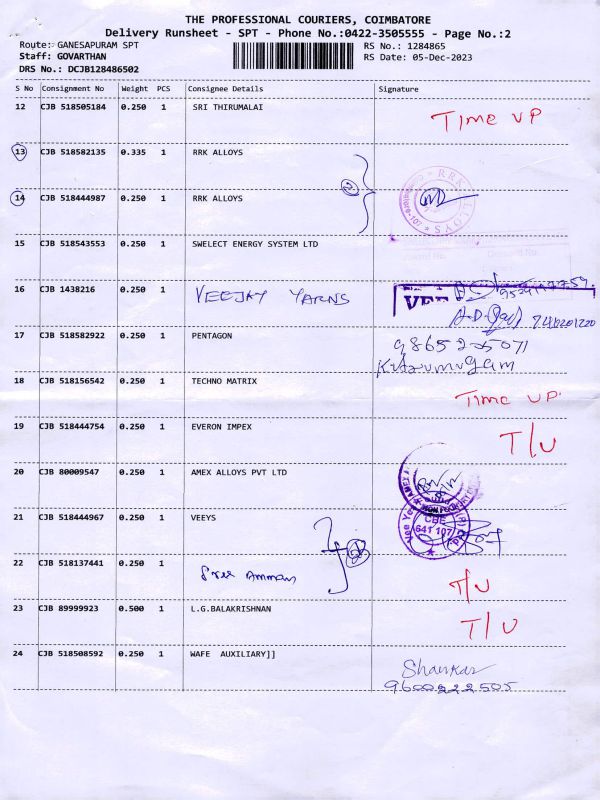 THE PROFESSIONAL COURIERS, COIMBATORE
Delivery Runsheet - SPT - Phone No.:0422-3505555 - Page No.:2
Route: GANESAPURAM SPT
RS No.: 1284865
Staff: GOVARTHAN
RS Date: 05-Dec-2023
DRS No.: DCJB128486502
S No Consignment No Weight PCS Consignee Details Signature
12 CJB 518505184 0.250 1 SRI THIRUMALAI Time UP
13 CJB 518582135 0.335 1 RRK ALLOYS
2
14 CJB 518444987 0.250 1 RRK ALLOYS
15 CJB 518543553 0.250 1 SWELECT ENERGY SYSTEM LTD
16 CJB 1438216 0.250 1 VEEJAY YARNS
VEE
17 CJB 518582922 0.250 1 PENTAGON
18 CJB 518156542 0.250 1 TECHNO MATRIX Time UP
19 CJB 518444754 0.250 1 EVERON IMPEX T/U
20 CJB 80009547 0.250 1 AMEX ALLOYS PVT LTD
21 CJB 518444967 0.250 1 VEEYS
CBE
641 107
22 CJB 518137441 0.250 1 Sree Amman T/U
23 CJB 89999923 0.500 1 L.G.BALAKRISHNAN T/U
24 CJB 518508592 0.250 1 WAFE AUXILIARY]] Shankar
9600222505